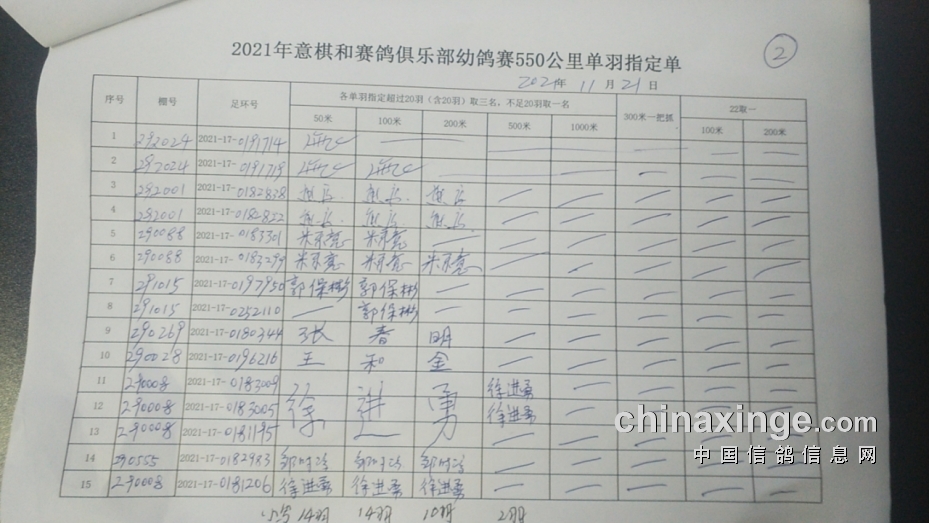 2021年意棋和赛鸽俱乐部幼鸽赛550公里单羽指定单
②
2021年 11月 21日
序号 棚号 足环号 各单羽指定超过20羽（含20羽）取三名，不足20羽取一名 300米一把抓 22取一
50米 100米 200米 500米 1000米 100米 200米
1 292024 2021-17-0191714 — — — — — — —
2 292024 2021-17-0191719 — — — — — —
3 292001 2021-17-0182838 — — — — —
4 292001 2021-17-0182852 — — — — —
5 290088 2021-17-0183301 — — — — — —
6 290088 2021-17-0183299 — — — — —
7 291015 2021-17-0197950 郭保彬 郭保彬 — — — — — —
8 291015 2021-17-0252110 — 郭保彬 — — — — — —
9 290269 2021-17-0180344 张 春 明 — — — — —
10 290028 2021-17-0196216 王 和 金 — — — — —
11 290008 2021-17-0183009 徐进勇 — — — —
12 290008 2021-17-0183005 徐 进 勇 徐进勇 — — — —
13 290008 2021-17-0181195 — — — — —
14 290555 2021-17-0182983 — — — — —
15 290008 2021-17-0181206 徐进勇 徐进勇 徐进勇 — — — — —
14羽 14羽 10羽 2羽
chinaxinge.com
中国信鸽信息网